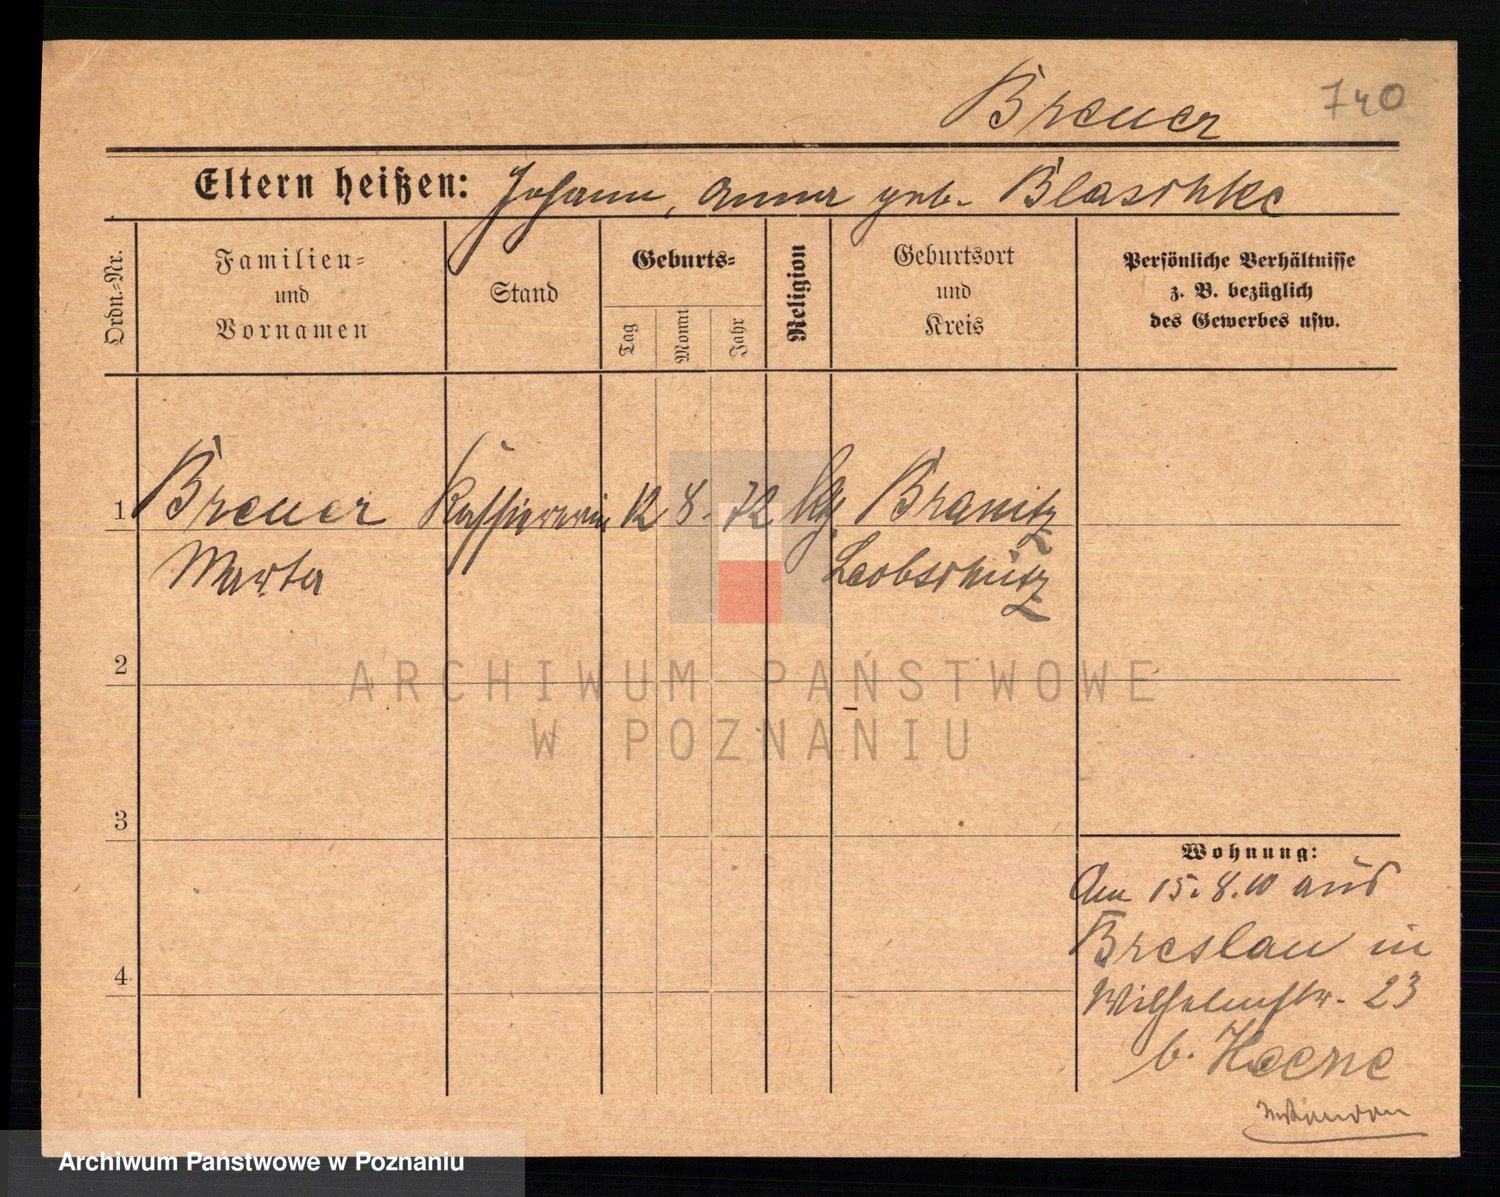 Breuer 740
Eltern heißen: Johann, Anna geb. Blaschke
Ordn.-Nr.
Familien-
und
Vornamen
Stand
Geburts-
Tag
Monat
Jahr
Religion
Geburtsort
und
Kreis
Persönliche Verhältnisse
z. B. bezüglich
des Gewerbes usw.
1 Breuer Kassiererin 12 8. 72 Branitz
Marta Leobschütz
2
ARCHIWUM PAŃSTWOWE
W POZNANIU
3
4
Wohnung:
Am 15.8.10 aus
Breslau in
Wilhelmstr. 23
b. Heene
Archiwum Państwowe w Poznaniu